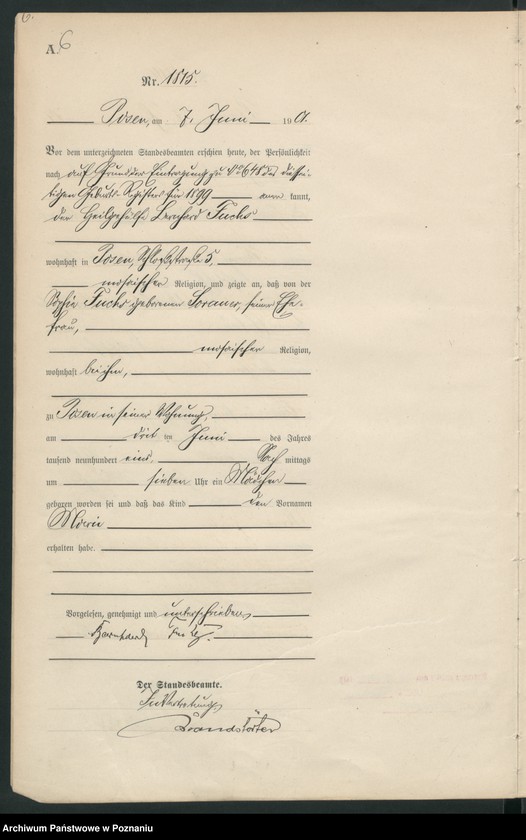 6.
A. 6
Nr. 1815.
Posen, am 7. Juni 1901.
Vor dem unterzeichneten Standesbeamten erschien heute, der Persönlichkeit
nach auf Grund der Eintragung zu No 645 des diessei-
tigen Geburts-Registers für 1899 aner kannt,
der Heilgehülfe Bernhard Fuchs
wohnhaft in Posen, Schloßstraße 5,
mosaischer Religion, und zeigte an, daß von der
Sophie Fuchs geborenen Soraner, seiner Ehe-
frau,
mosaischer Religion,
wohnhaft bei ihm,
zu Posen in seiner Wohnung,
am dritten Juni des Jahres
tausend neunhundert eins, Nach mittags
um sieben Uhr ein Mädchen
geboren worden sei und daß das Kind den Vornamen
Marie
erhalten habe.
Vorgelesen, genehmigt und unterschrieben
Bernhard Fuchs.
Der Standesbeamte.
In Vertretung
Brandstäter
Archiwum Państwowe w Poznaniu